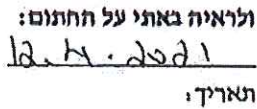 ולראיה באתי על החתום:
12.4.2021
תאריך: